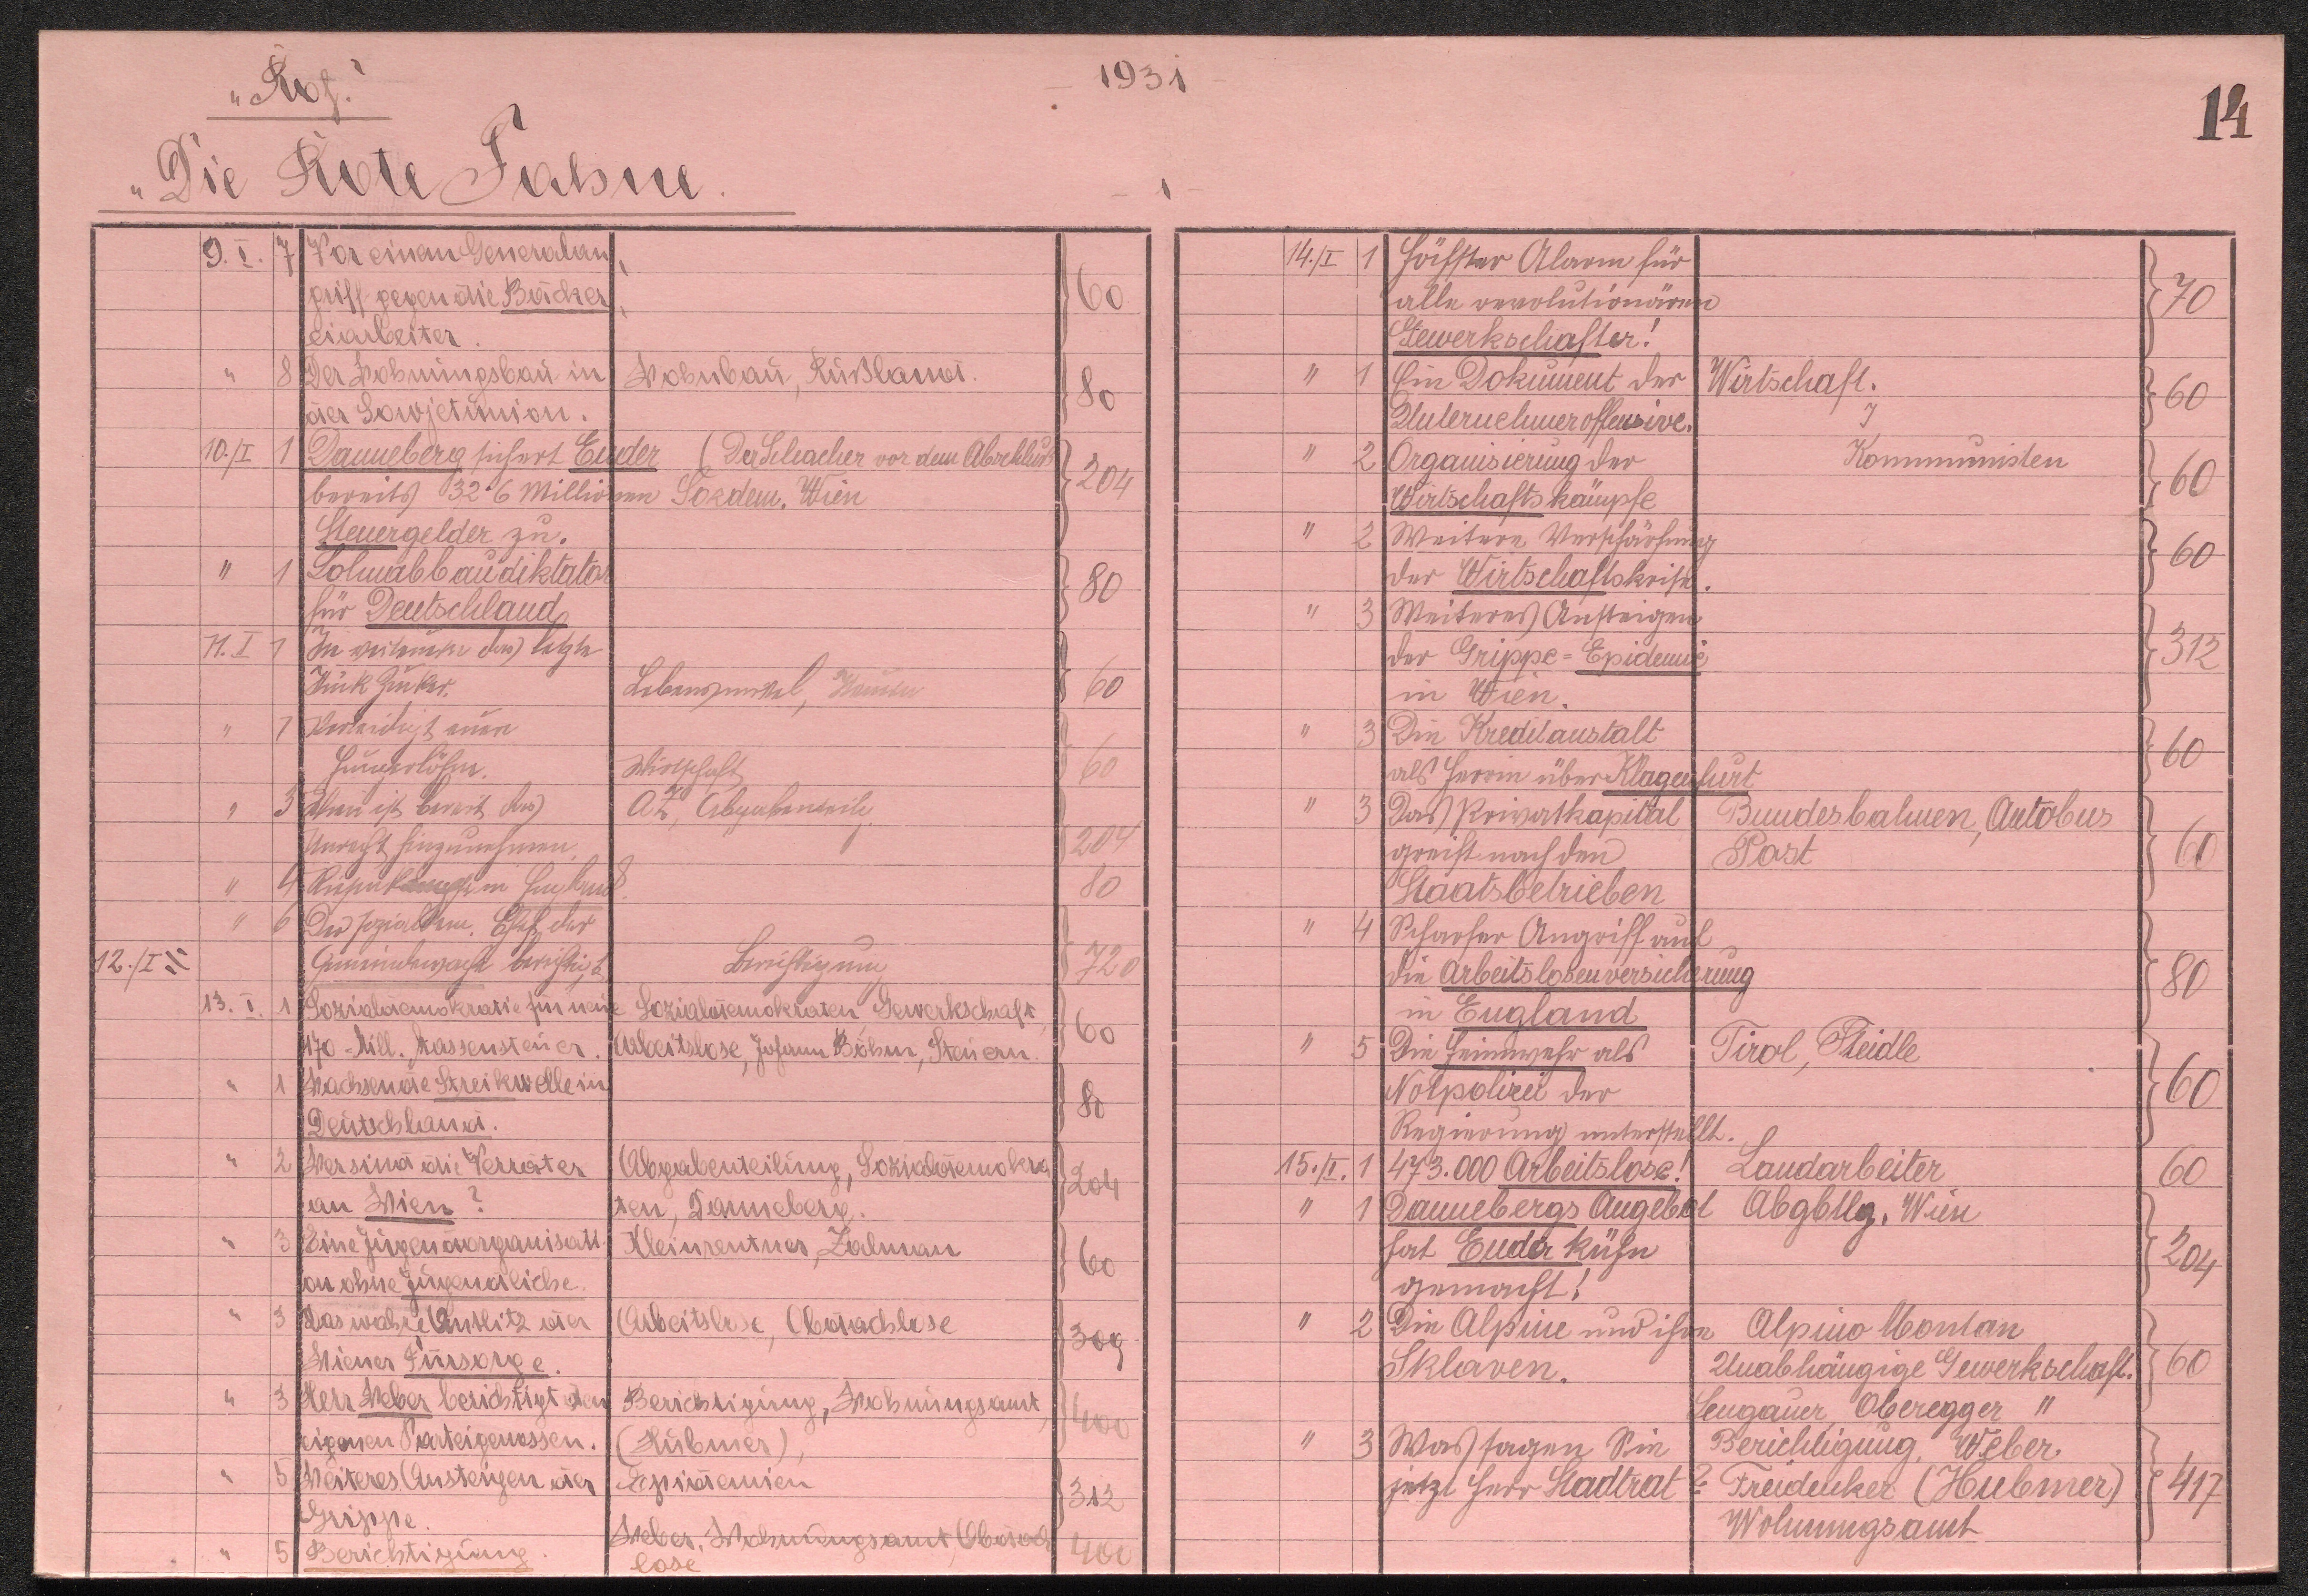 „Rof."
1931
14
„Die Rote Fahne.
- 1 -
9. I. 7 Vor einem Generalan
griff gegen die Bäcker 60
eiarbeiter.
" 8 Der Wohnungsbau in Wohnbau, Rußland. 80
der Sowjetunion.
10./I 1 Danneberg sichert Ender (Der Schacher vor dem Abschluß
bereits 32·6 Millionen Sozdem. Wien 204
Steuergelder zu.
" 1 Lohnabbaudiktator
für Deutschland 80
11. I 1 das letzte
Stück Zucker. Lebensmittel, 60
" 1 Verteidigt eure
Hungerlöhne. Wirtschaft 60
" 3 Wien ist bereit das AZ, Abgabenteilg.
Unrecht hinzunehmen 204
" 4 in England. 80
" 6 Der sozialdem. Chef der
12./I " Gemeindewache berichtigt Berichtigung 720
13. I. 1 Sozialdemokratie für neue Sozialdemokraten Gewerkschaft,
170-Mill. Massensteuer. Arbeitslose, Johann Böhm, Steuern. 60
" 1 Wachsende Streikwelle in
Deutschland. 80
" 2 Wer sind die Verräter Abgabenteilung, Sozialdemokra
an Wien? ten, Danneberg. 204
" 3 Eine Jugendorganisati Kleinrentner, Zalman
on ohne Jugendliche. 60
" 3 Das wahre Antlitz der Arbeitslose, Obdachlose
Wiener Fürsorge. 309
" 3 Herr Weber berichtigt den Berichtigung, Wohnungsamt,
eigenen Parteigenossen. (Hubmer), 400
" 5 Weiteres Ansteigen der Epidemien
Grippe. 312
" 5 Berichtigung. Weber, Wohnungsamt, Obdach 400
lose
14./I 1 Höchster Alarm für
alle revolutionären 70
Gewerkschafter!
" 1 Ein Dokument der Wirtschaft. 60
Unternehmeroffensive.
" 2 Organisierung der Kommunisten
Wirtschaftskämpfe 60
" 2 Weitere Verschärfung
der Wirtschaftskrise. 60
" 3 Weiteres Ansteigen
der Grippe=Epidemie 312
in Wien.
" 3 Die Kreditanstalt
als Herrin über Klagenfurt 60
" 3 Das Privatkapital Bundesbahnen, Autobus
greift nach den Post 60
Staatsbetrieben
" 4 Scharfer Angriff auf
die Arbeitslosenversicherung 80
in England
" 5 Die Heimwehr als Tirol, Steidle
Notpolizei der 60
Regierung unterstellt.
15./I. 1 473.000 Arbeitslose! Landarbeiter 60
" 1 Dannebergs Angebot Abgbtlg. Wien
hat Ender kühn 204
gemacht!
" 2 Die Alpine und ihre Alpine Montan
Sklaven. Unabhängige Gewerkschaft. 60
Lengauer, Oberegger "
" 3 Was sagen Sie Berichtigung, Weber.
jetzt Herr Stadtrat? Freidenker (Hubmer) 417
Wohnungsamt